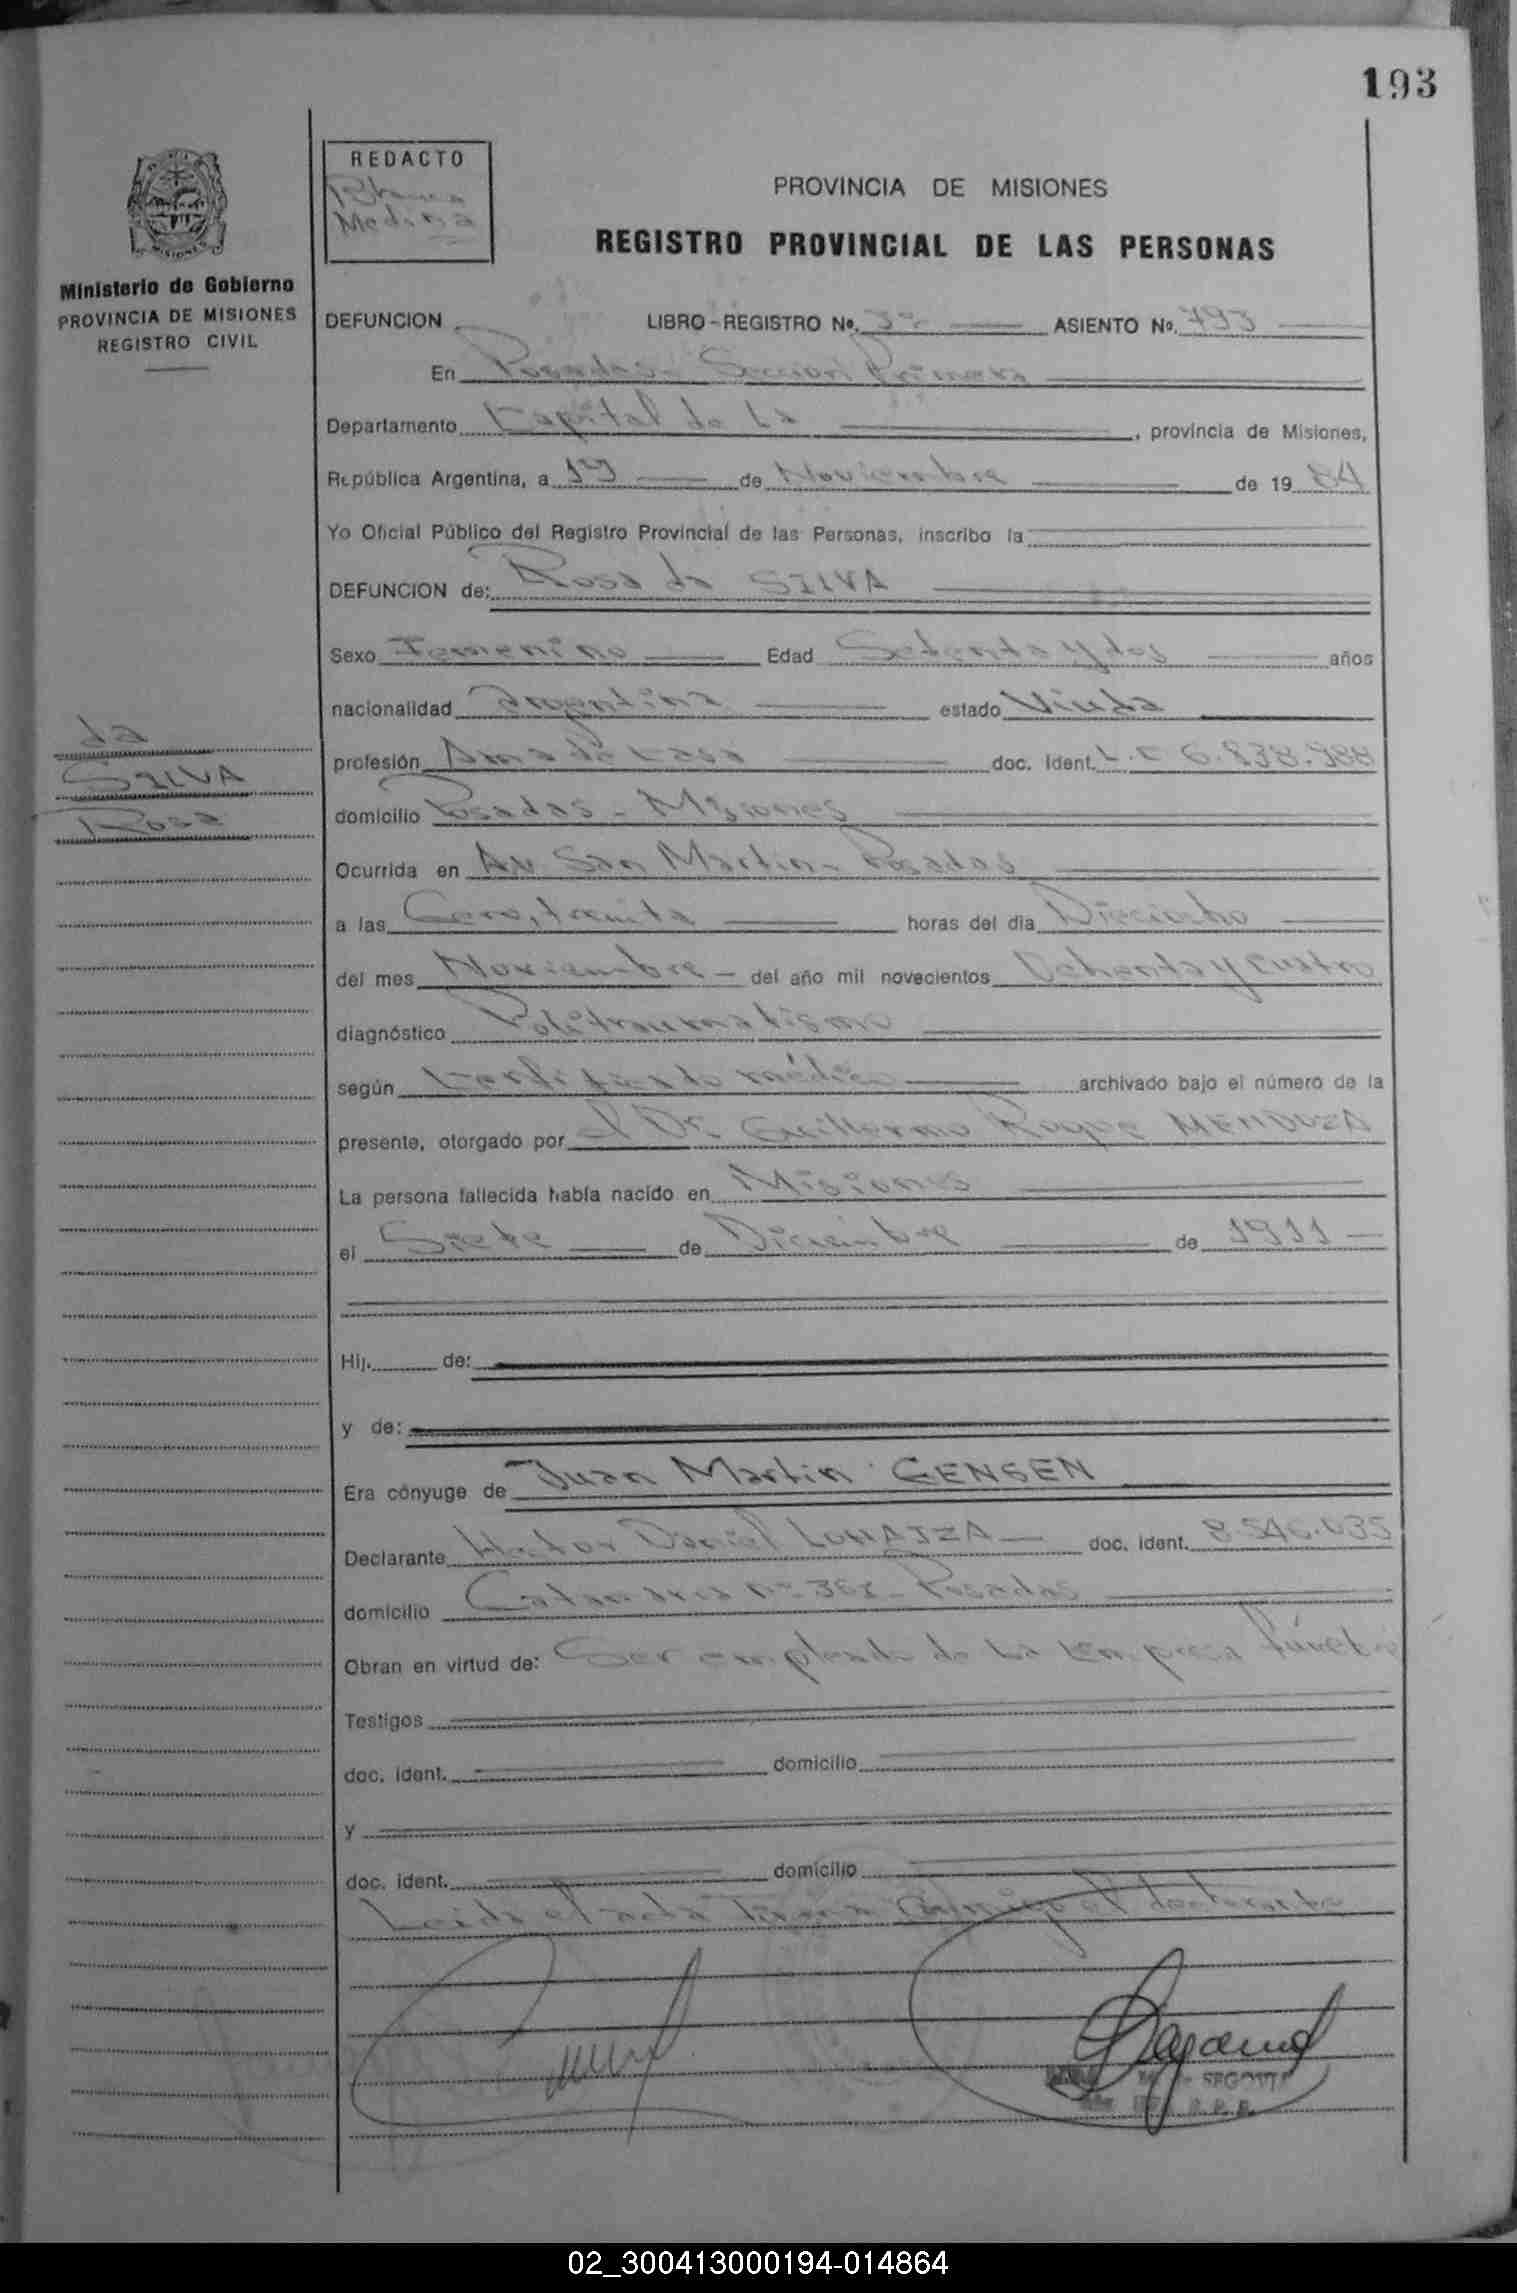 193
REDACTO
Medina
PROVINCIA DE MISIONES
REGISTRO PROVINCIAL DE LAS PERSONAS
Ministerio de Gobierno
PROVINCIA DE MISIONES
REGISTRO CIVIL
DEFUNCION LIBRO-REGISTRO Nº. ASIENTO Nº. 793
En Posadas - Seccion Primera
Departamento Capital de La, provincia de Misiones,
República Argentina, a 19 de Noviembre de 1984
Yo Oficial Público del Registro Provincial de las Personas, inscribo la
DEFUNCION de: Rosa da SILVA
Sexo Femenino Edad Setenta y dos años
nacionalidad Argentina estado Viuda
da
SILVA
Rosa
profesión Ama de casa doc. Ident. L.C 6.838.988
domicilio Posadas - Misiones
Ocurrida en Av San Martin - Posadas
a las Cero, treinta horas del día Dieciocho
del mes Noviembre - del año mil novecientos Ochenta y cuatro
diagnóstico Politraumatismo
según Certificado médico archivado bajo el número de la
presente, otorgado por el Dr. Guillermo Roque MENDOZA
La persona fallecida había nacido en Misiones
el Siete de Diciembre de 1911
Hij. de:
y de:
Era cónyuge de Juan Martin GENSEN
Declarante Hector Daniel doc. ident. 8.546.035
domicilio Catamarca Nº Posadas
Obran en virtud de: Ser empleado de la Empresa fúnebre
Testigos
doc. ident. domicilio
y
doc. ident. domicilio
Leida el acta firma conmigo el declarante
SEGOVIA
02_300413000194-014864